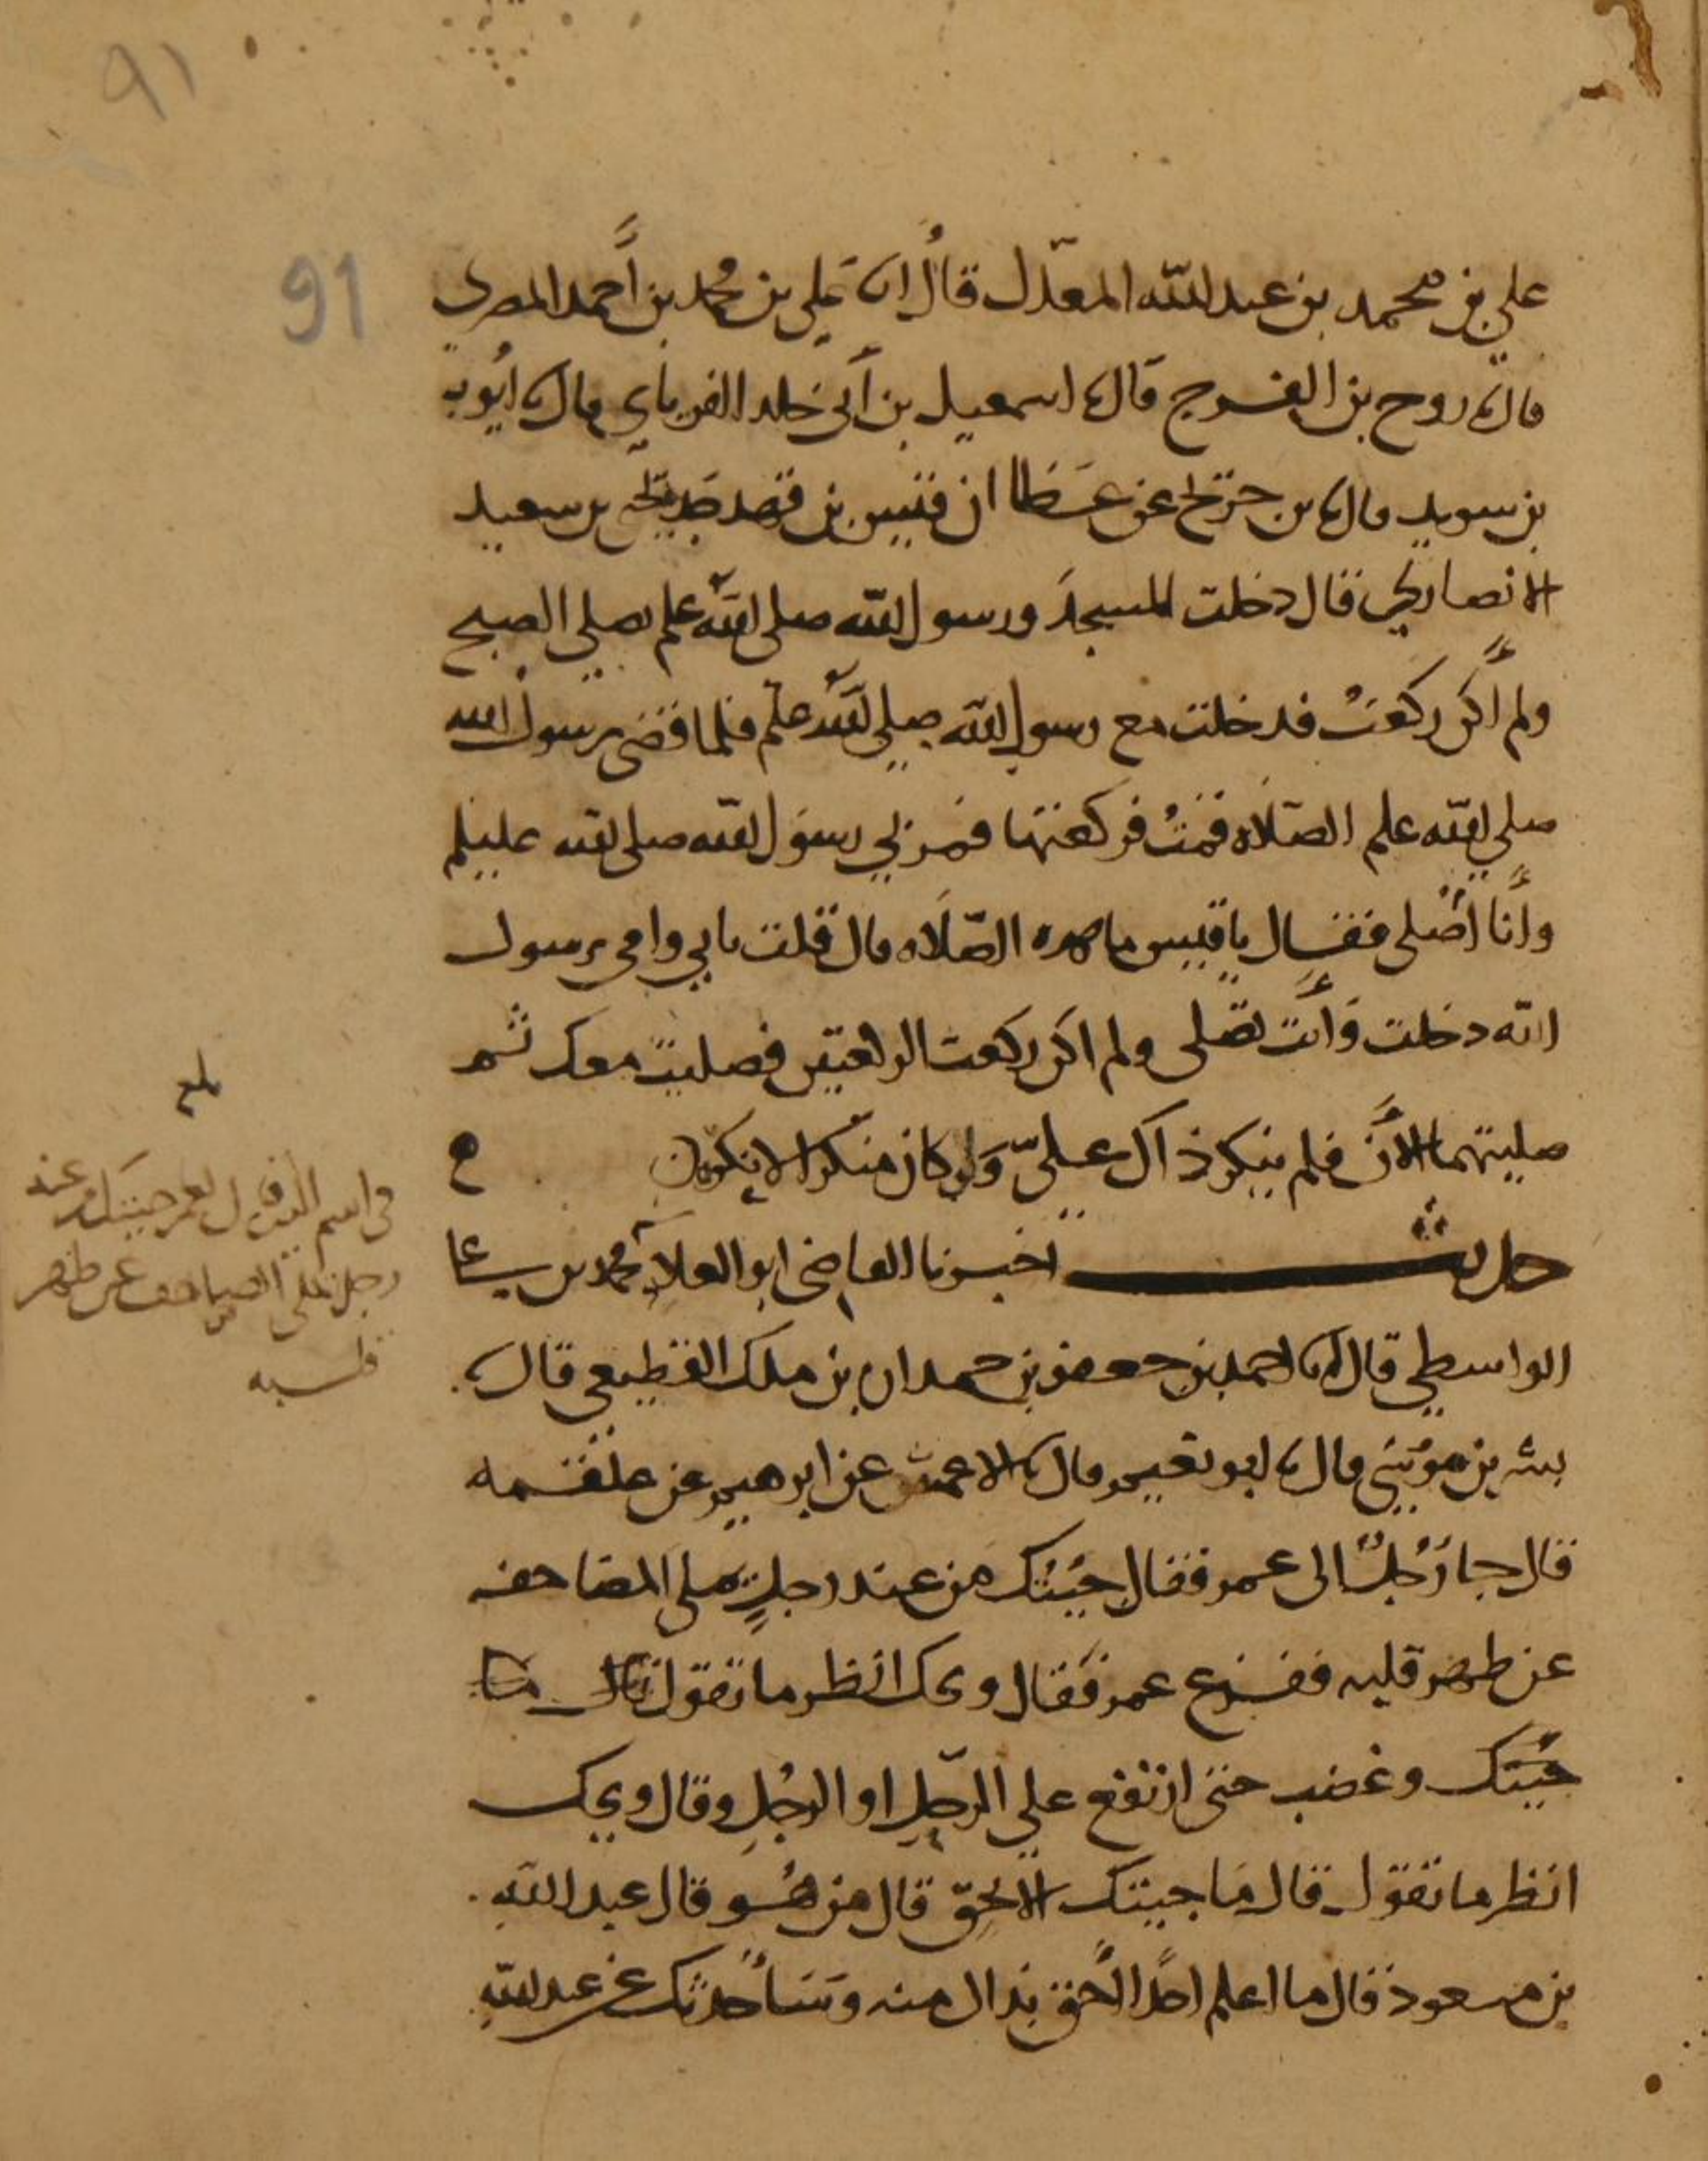 ٩١
91
علي بن محمد بن عبد الله المعدل قال انا علي بن محمد بن أحمد المصري
قال نا روح بن الفرج قال نا اسمعيل بن أبي خلد الفريابي قال نا ايوب
بن سويد قال نا بن جريج عن عطا ان قيس بن قهد بن سعيد
الانصاري قال دخلت المسجد ورسول الله صلى الله علم يصلي الصبح
ولم أكن ركعت فدخلت مع رسول الله صلى الله علم فلما قضى رسول الله
صلى الله علم الصلاه قمت فركعتها فمر بي رسول الله صلى الله
وأنا أصلي فقال يا قيس ما هده الصلاه قال قلت بابي وامي يرسول
الله دخلت وأنت تصلي ولم اكن ركعت الركعتين فصليت معك ثم
صليتهما الأن فلم ينكر ذاك علي ولو كان منكرا لا
حديث اخبرنا القاضي ابو العلاء محمد بن علي
الواسطي قال انا احمد بن جعفر بن حمدان بن ملك القطيعي قال نا
بشر بن موسى قال نا ابو نعيم قال نا الاعمش عن ابرهيم عن علقمه
قال جا رجل الى عمر فقال جيتك من عند رجل يملي المصاحف
عن ظهر قلبه ففزع عمر فقال ويحك انظر ما تقول قال ما
جيتك وغضب حتى انتفخ علي الرحل او الرجل وقال ويحك
انظر ما تقول قال ما جيتك الا بحق قال من هو قال عبد الله
بن مسعود قال ما اعلم احدا احق بذاك منه وسأحدثك عن عبد الله
بلغ
في اسم القايل لعمر جيتك من عند
رجل يملي المصاحف عن ظهر
قلبه